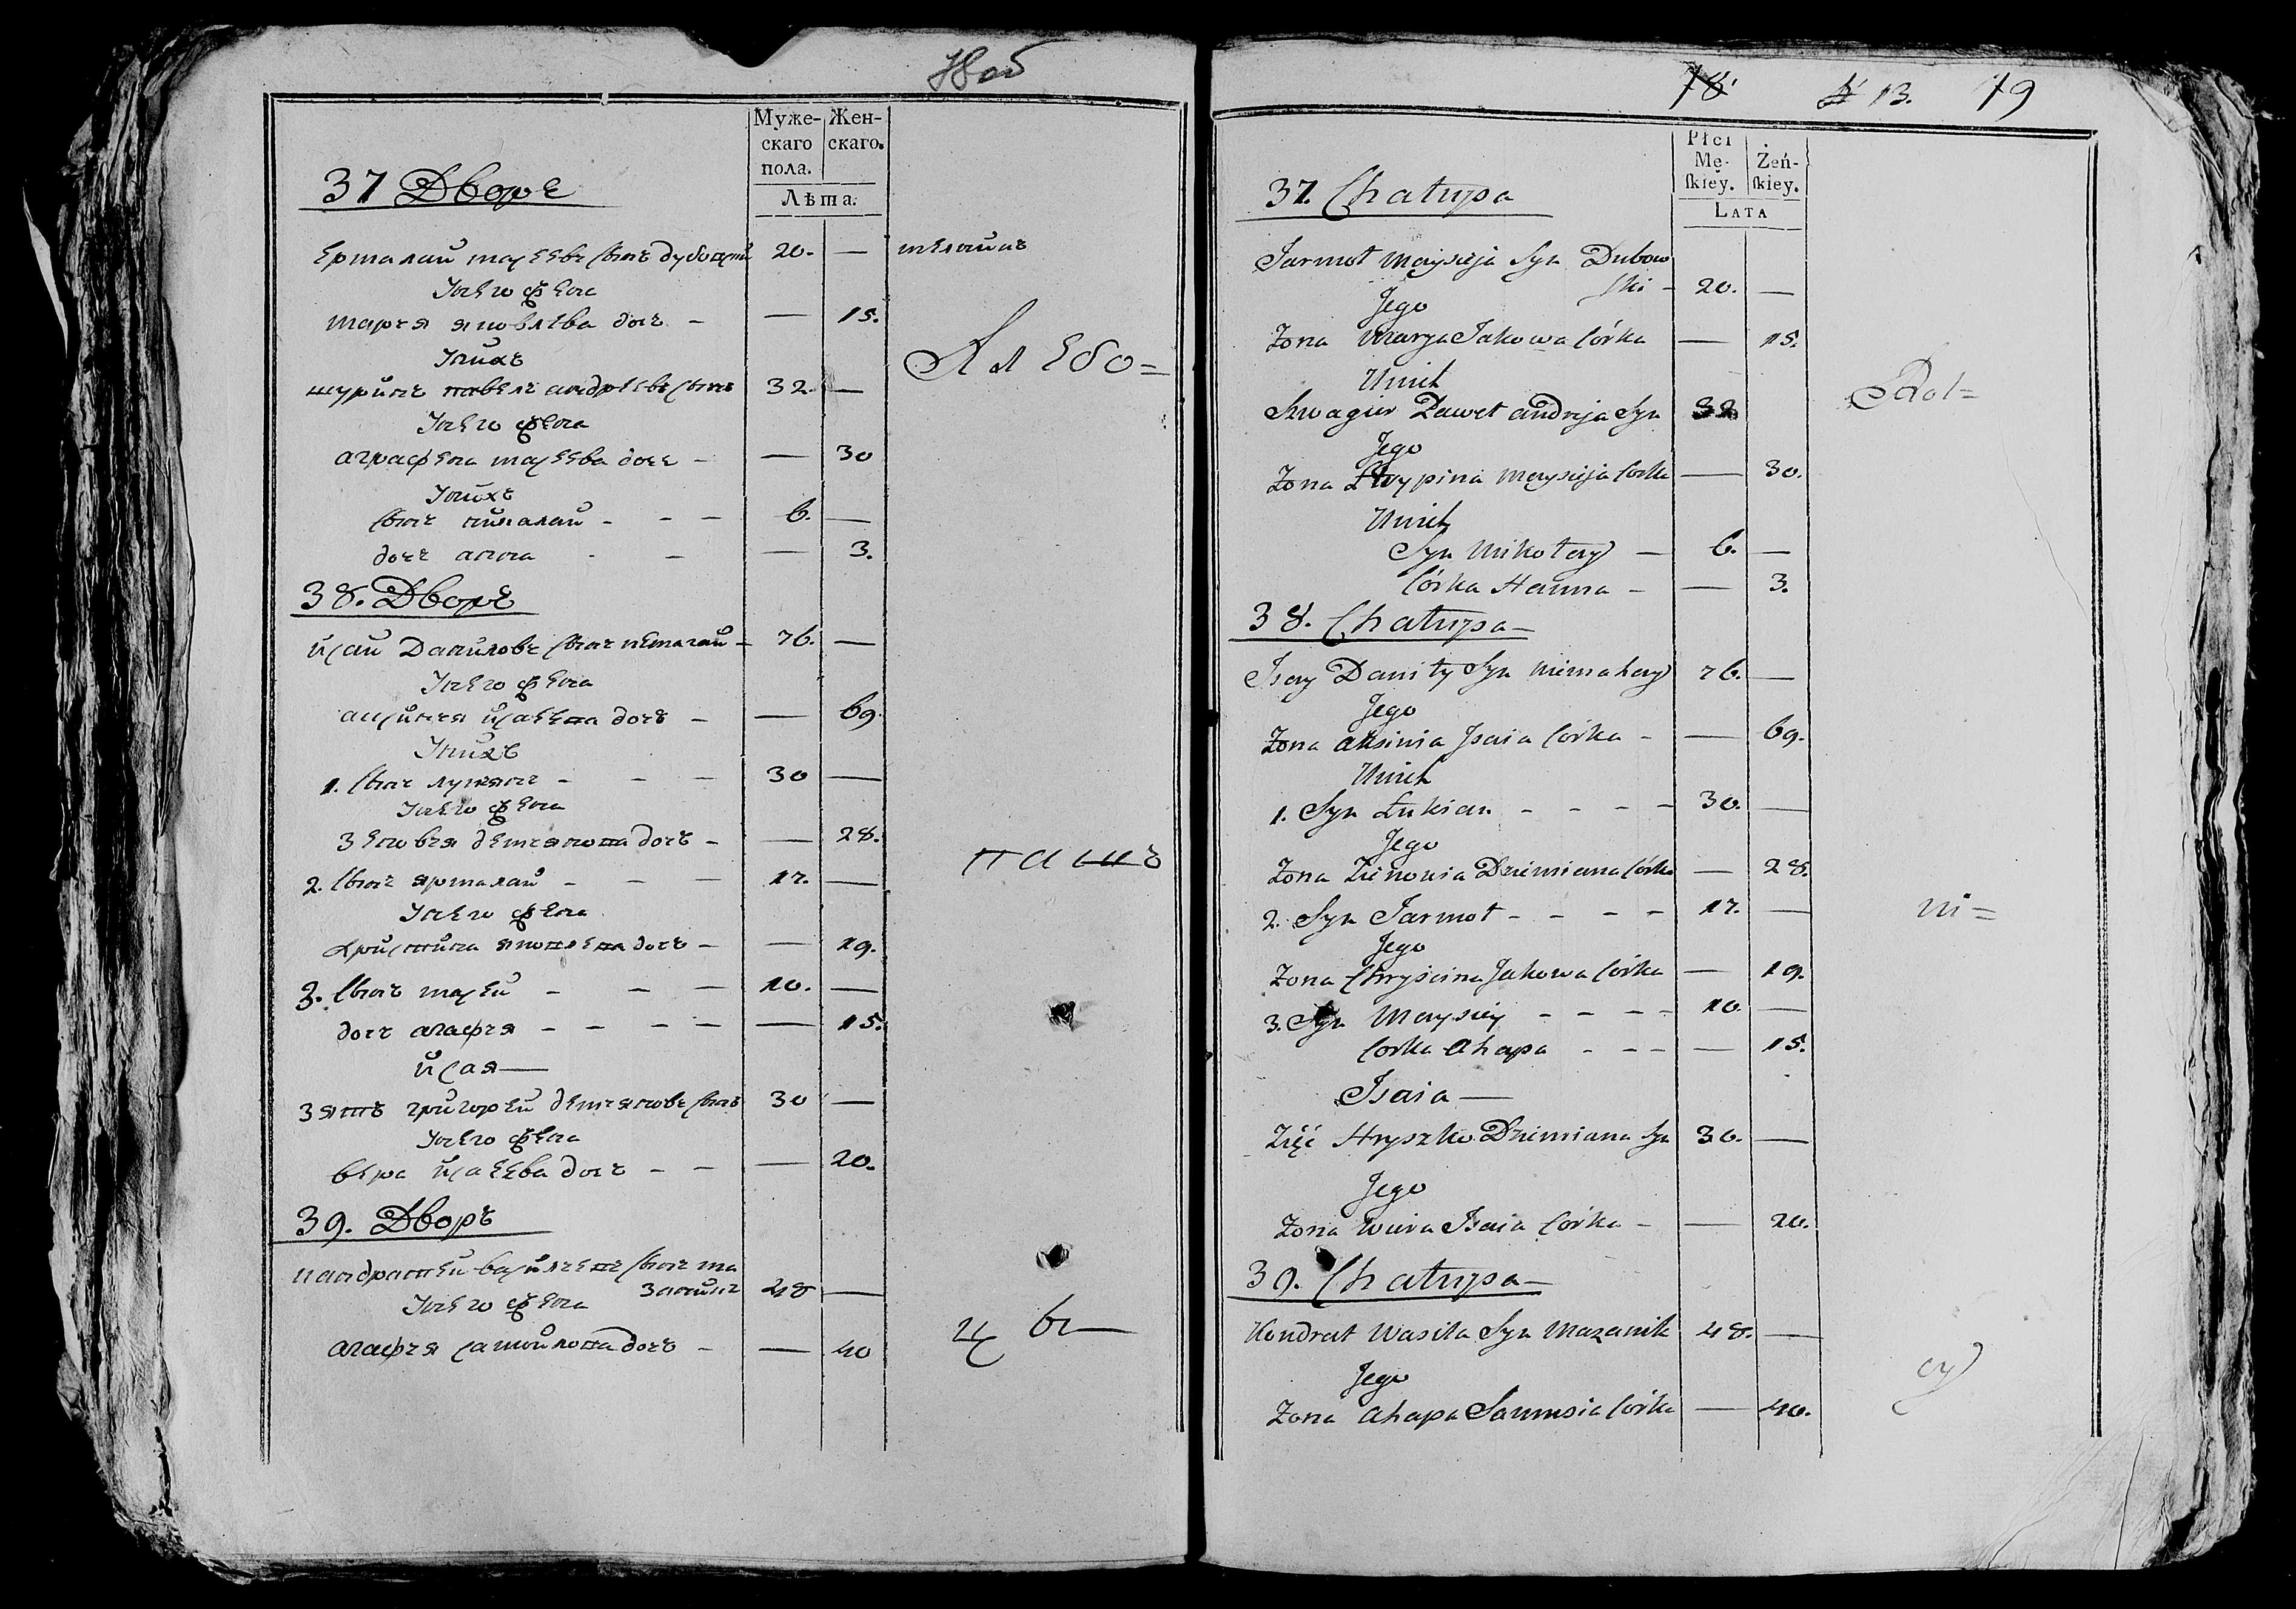 Муже-
скаго
пола.
Жен-
скаго.
Лѣта.
37 Дворъ
ермалай масеевъ сынъ дубоский 20. —
у него жена
маръя яковлева дочь - — 15.
у них
шуринъ павелъ андреевъ сынъ 32. —
у него жена
аграфена масеева дочь - — 30
у них
сынъ николай - - - 6. —
дочь анна - - — 3.
38. Дворъ
исай Даниловъ сынъ немагай - 76. —
у него жена
аксинья исаева дочь - — 69.
у них
1. сынъ лукянъ - - - 30 —
у него жена
зеновья демянова дочь - — 28.
2. сынъ ярмалай - - - 17. —
у него жена
христина яковлева дочь - — 19.
3. сынъ масей - - - 10. —
дочь агафья - - - - — 15.
исая —
зять григорей демяновъ сынъ 30 —
у него жена
вера исаева дочь - - — 20.
39. Дворъ
кандратей василевъ сынъ ма
заникъ 48 —
у него жена
агафья самойлова дочь - — 40
Алебо=
78. 13. 79
Płci
Mę-
skiey.
Żeń-
skiey.
LATA
37. Chałupa
Jarmoł Moysieja Syn Dubow
ski - 20. —
Jego
Żona Marya Jakowa Córka — 15.
U nich
Szwagier Paweł Andreja Syn 32
Jego
Żona Moysieja Corka — 30.
U nich
Syn Mikołay — 6. —
Córka Hanna - — 3.
38. Chałupa —
Isay Daniły Syn Niemahay 76. —
Jego
Żona Aksinia Isaia Córka - — 69.
U nich
1. Syn Łukian - - - - 30. —
Jego
Żona Zienowia Dziemiana Córka — 28.
2. Syn Jarmoł - - - - 17. —
Jego
Żona Chryścina Jakowa Córka — 19.
3. Syn Moysiey - - - - 10. —
Corka Ahapa - - - — 15.
Isaia —
Zięć Hryszko Dziemiana Syn 30. —
Jego
Żona Wiera Isaia Córka - — 20.
39. Chałupa —
Kondrat Wasila Syn Mazanik 48. —
Jego
Żona Ahapa Samusia Córka — 40.
Rol=
ni=
cy